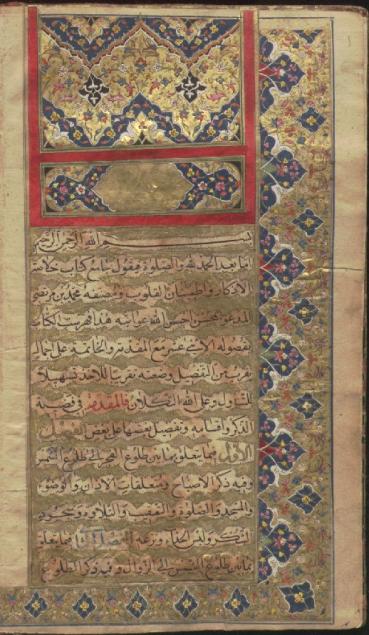 بسم الله الرحمن الرحيم
اما بعد الحمد لله والصلوة فيقول جامع كتاب خلاصة
الاذكار واطمينان القلوب ومصنفه محمد بن مرتضى
المدعو بمحسن احسن الله عواقبه هذا فهرست الكتاب
بفصوله الاثنى عشر مع المقدمة والخاتمة على اجمال
يقرب من التفصيل وضعته تقريبا للاخذ وتسهيلا
للتناول وعلى الله التكلان فالمقدمة فى فضيلة
الذكر واقسامه وتفصيل بعضها على بعض الفصل
الاول فيما يتعلق بما بين طلوع الفجر الى طلوع الشمس
وفيه ذكر الاصباح ومتعلقات الاذان والوضوء
والمسجد والصلوة والتعقيب والتلاوة وسجود
الشكر ولبس الخف ونزعه فيما يتعلق
بما بين طلوع الشمس الى الزوال وفيه ذكر الطلوع